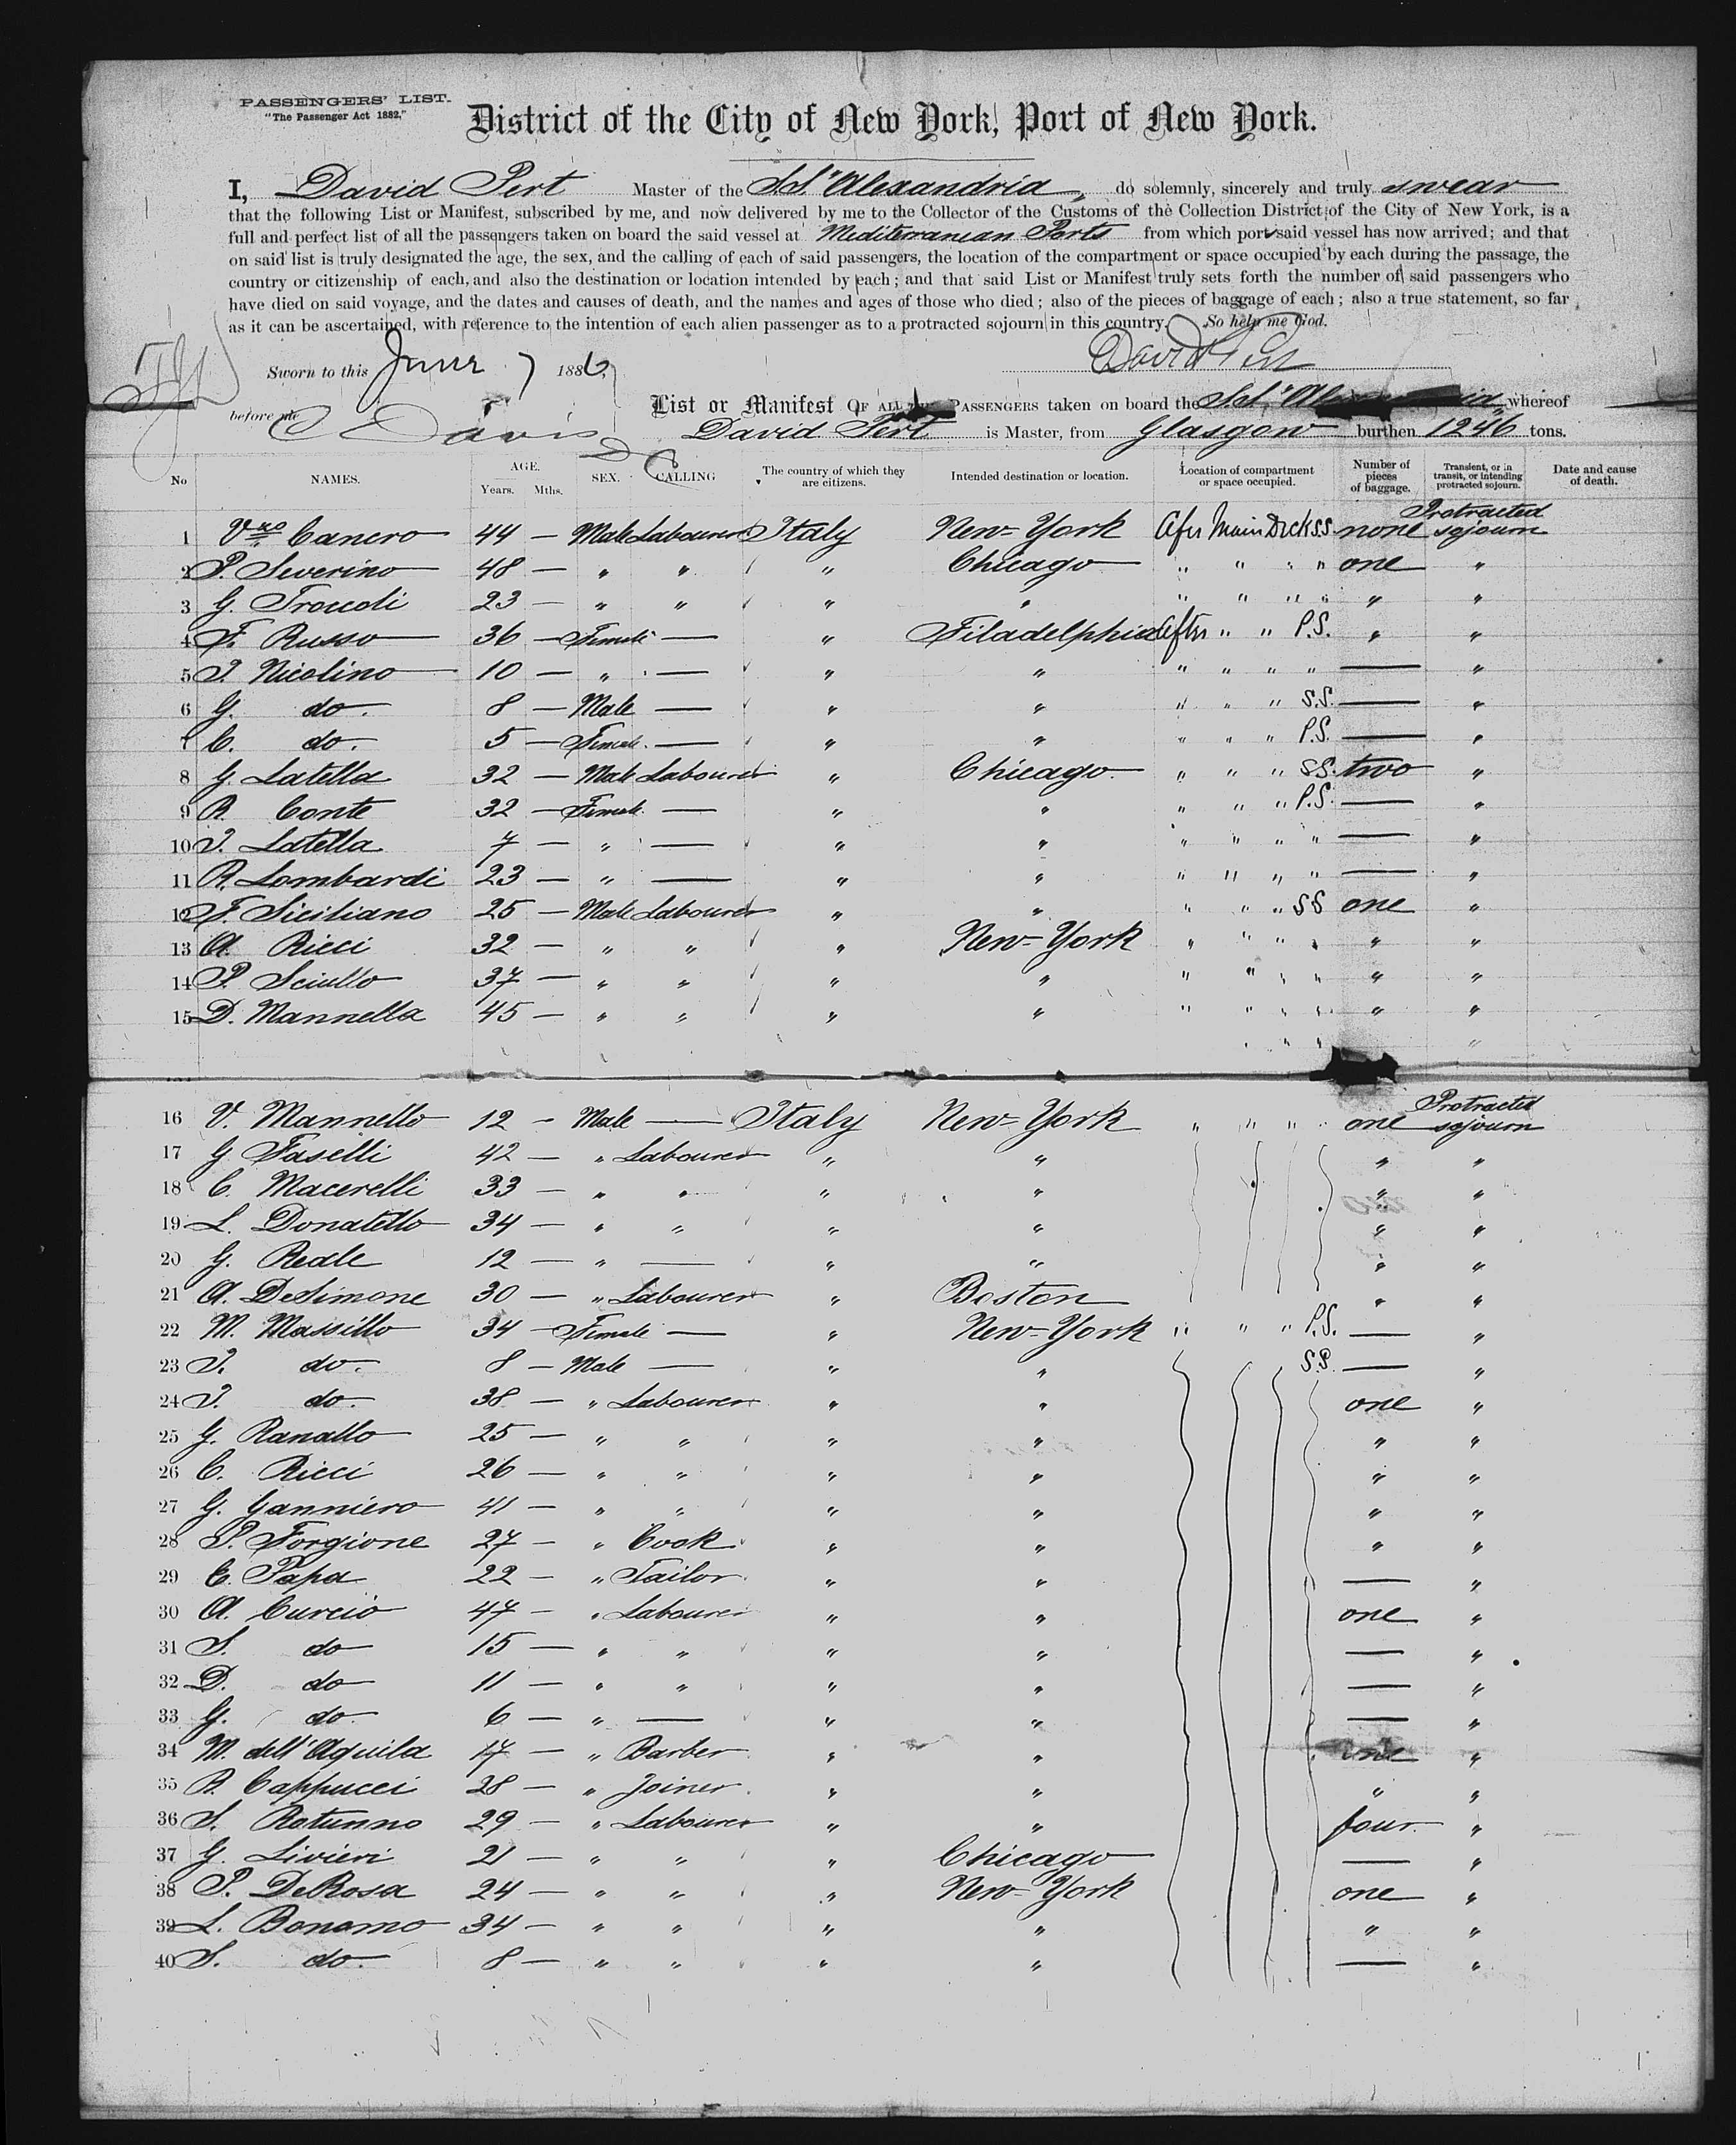 PASSENGERS' LIST.
"The Passenger Act 1882."
District of the City of New York, Port of New York.
I, David Pert Master of the S.S. "Alexandria" do solemnly, sincerely and truly swear
that the following List or Manifest, subscribed by me, and now delivered by me to the Collector of the Customs of the Collection District of the City of New York, is a
full and perfect list of all the passengers taken on board the said vessel at Mediterranean Ports from which port said vessel has now arrived; and that
on said list is truly designated the age, the sex, and the calling of each of said passengers, the location of the compartment or space occupied by each during the passage, the
country or citizenship of each, and also the destination or location intended by each; and that said List or Manifest truly sets forth the number of said passengers who
have died on said voyage, and the dates and causes of death, and the names and ages of those who died; also of the pieces of baggage of each; also a true statement, so far
as it can be ascertained, with reference to the intention of each alien passenger as to a protracted sojourn in this country. So help me God.
Sworn to this June 7 1886, David Pert
before me C Davis
List or Manifest OF ALL THE PASSENGERS taken on board the S.S. "Alexandria" whereof
David Pert is Master, from Glasgow burthen 1246 tons.
No NAMES. AGE. Years. Mths. SEX. CALLING The country of which they are citizens. Intended destination or location. Location of compartment or space occupied. Number of pieces of baggage. Transient, or in transit, or intending protracted sojourn. Date and cause of death.
1 Vzo Canero 44 — Male Labourer Italy New-York After Main Deck S.S. none Protracted sojourn
2 P. Severino 48 — " " " Chicago " " " " one "
3 G. Troucoli 23 — " " " " " " " " " "
4 F. Russo 36 — Female — " Filadelphia After " " P.S. " "
5 T. Nicolino 10 — " — " " " " " " — "
6 G. do. 8 — Male — " " " " " S.S. — "
7 C. do. 5 — Female — " " " " " P.S. — "
8 G. Latella 32 — Male Labourer " Chicago " " " S.S. two "
9 R. Conte 32 — Female — " " " " " P.S. — "
10 T. Latella 7 — " — " " " " " " — "
11 R. Lombardi 23 — " — " " " " " " — "
12 F. Siciliano 25 — Male Labourer " " " " " SS one "
13 A. Ricci 32 — " " " New-York " " " " " "
14 P. Sciullo 37 — " " " " " " " " " "
15 D. Mannella 45 — " " " " " " " " " "
" " " "
16 V. Mannello 12 — Male — Italy New-York " " " " one Protracted sojourn
17 G. Faselli 42 — " Labourer " " " "
18 C. Macerelli 33 — " " " " " "
19 L. Donatello 34 — " " " " " "
20 G. Reale 12 — " — " " " "
21 A. DeSimone 30 — " Labourer " Boston " "
22 M. Massillo 34 — Female — " New-York " " " P.S. — "
23 T. do. 8 — Male — " " S.S. — "
24 T. do. 38 — " Labourer " " one "
25 G. Ranallo 25 — " " " " " "
26 C. Ricci 26 — " " " " " "
27 G. Ganniero 41 — " " " " " "
28 P. Forgione 27 — " Cook " " " "
29 C. Papa 22 — " Tailor " " — "
30 A. Curcio 47 — " Labourer " " one "
31 S. do 15 — " " " " — "
32 D. do 11 — " " " " — "
33 G. do. 6 — " — " " — "
34 M. dell'Aquila 17 — " Barber " " one "
35 R. Cappucci 28 — " Joiner " " " "
36 S. Rotunno 29 — " Labourer " " four "
37 G. Livieri 21 — " " " Chicago — "
38 P. DeRosa 24 — " " " New-York one "
39 L. Bonomo 34 — " " " " " "
40 S. do. 8 — " " " " — "